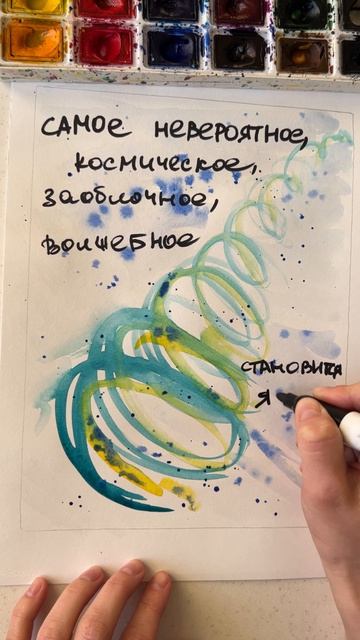 САМОЕ НЕВЕРОЯТНОЕ,
КОСМИЧЕСКОЕ,
ЗАОБЛОЧНОЕ,
ВОЛШЕБНОЕ
СТАНОВИТСЯ
Я